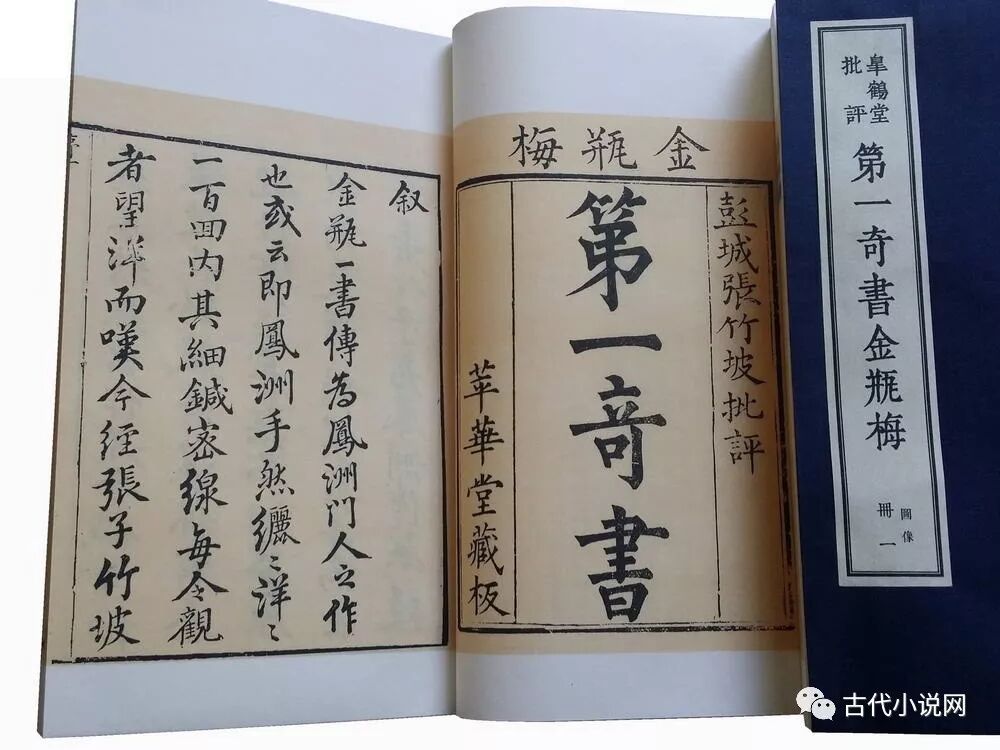 皐鶴堂
批評
第一奇書金瓶梅
圖像
冊一
金瓶梅
彭城張竹坡批評
第一奇書
苹華堂藏板
叙
金瓶一書傳為鳳洲門人之作
也或云即鳳洲手然纚〻洋〻
一百回内其細鍼密線每令觀
者望洋而嘆今經張子竹坡
古代小说网